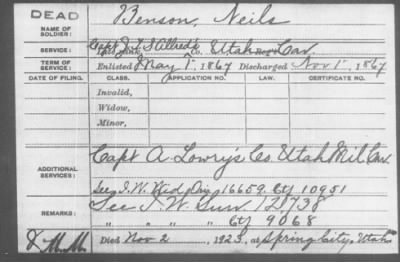 DEAD
NAME OF SOLDIER: Benson, Neils
SERVICE: Capt J. L. S Allred's Co. Utah Cav.
TERM OF SERVICE: Enlisted May 1, 1867 Discharged Nov 1, 1867
DATE OF FILING. CLASS. APPLICATION NO. LAW. CERTIFICATE NO.
Invalid,
Widow,
Minor,
ADDITIONAL SERVICES: Capt A Lowry's Co. Utah Mil Cav
See I. W. Orig 16659 Ctf 10951
REMARKS: See I. W. Surv 121738
" " " " Ctf 9068
M.M. Died Nov 2, 1923, at Spring City, Utah